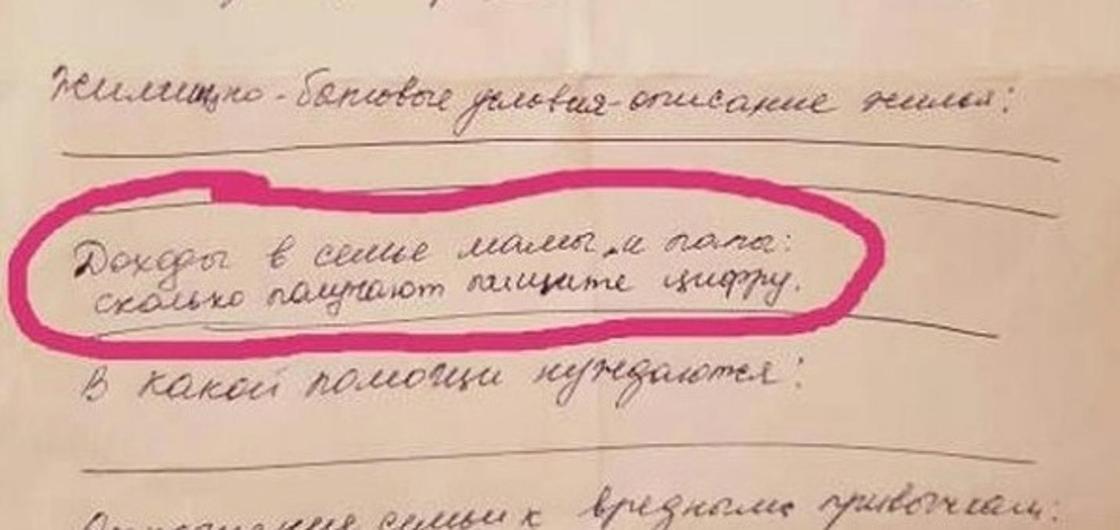 Жилищно-бытовые условия-описание жилья:
Доходы в семье мамы и папы:
сколько получают пишите цифру.
В какой помощи нуждаются:
Отношение семьи к вредными привычкам: